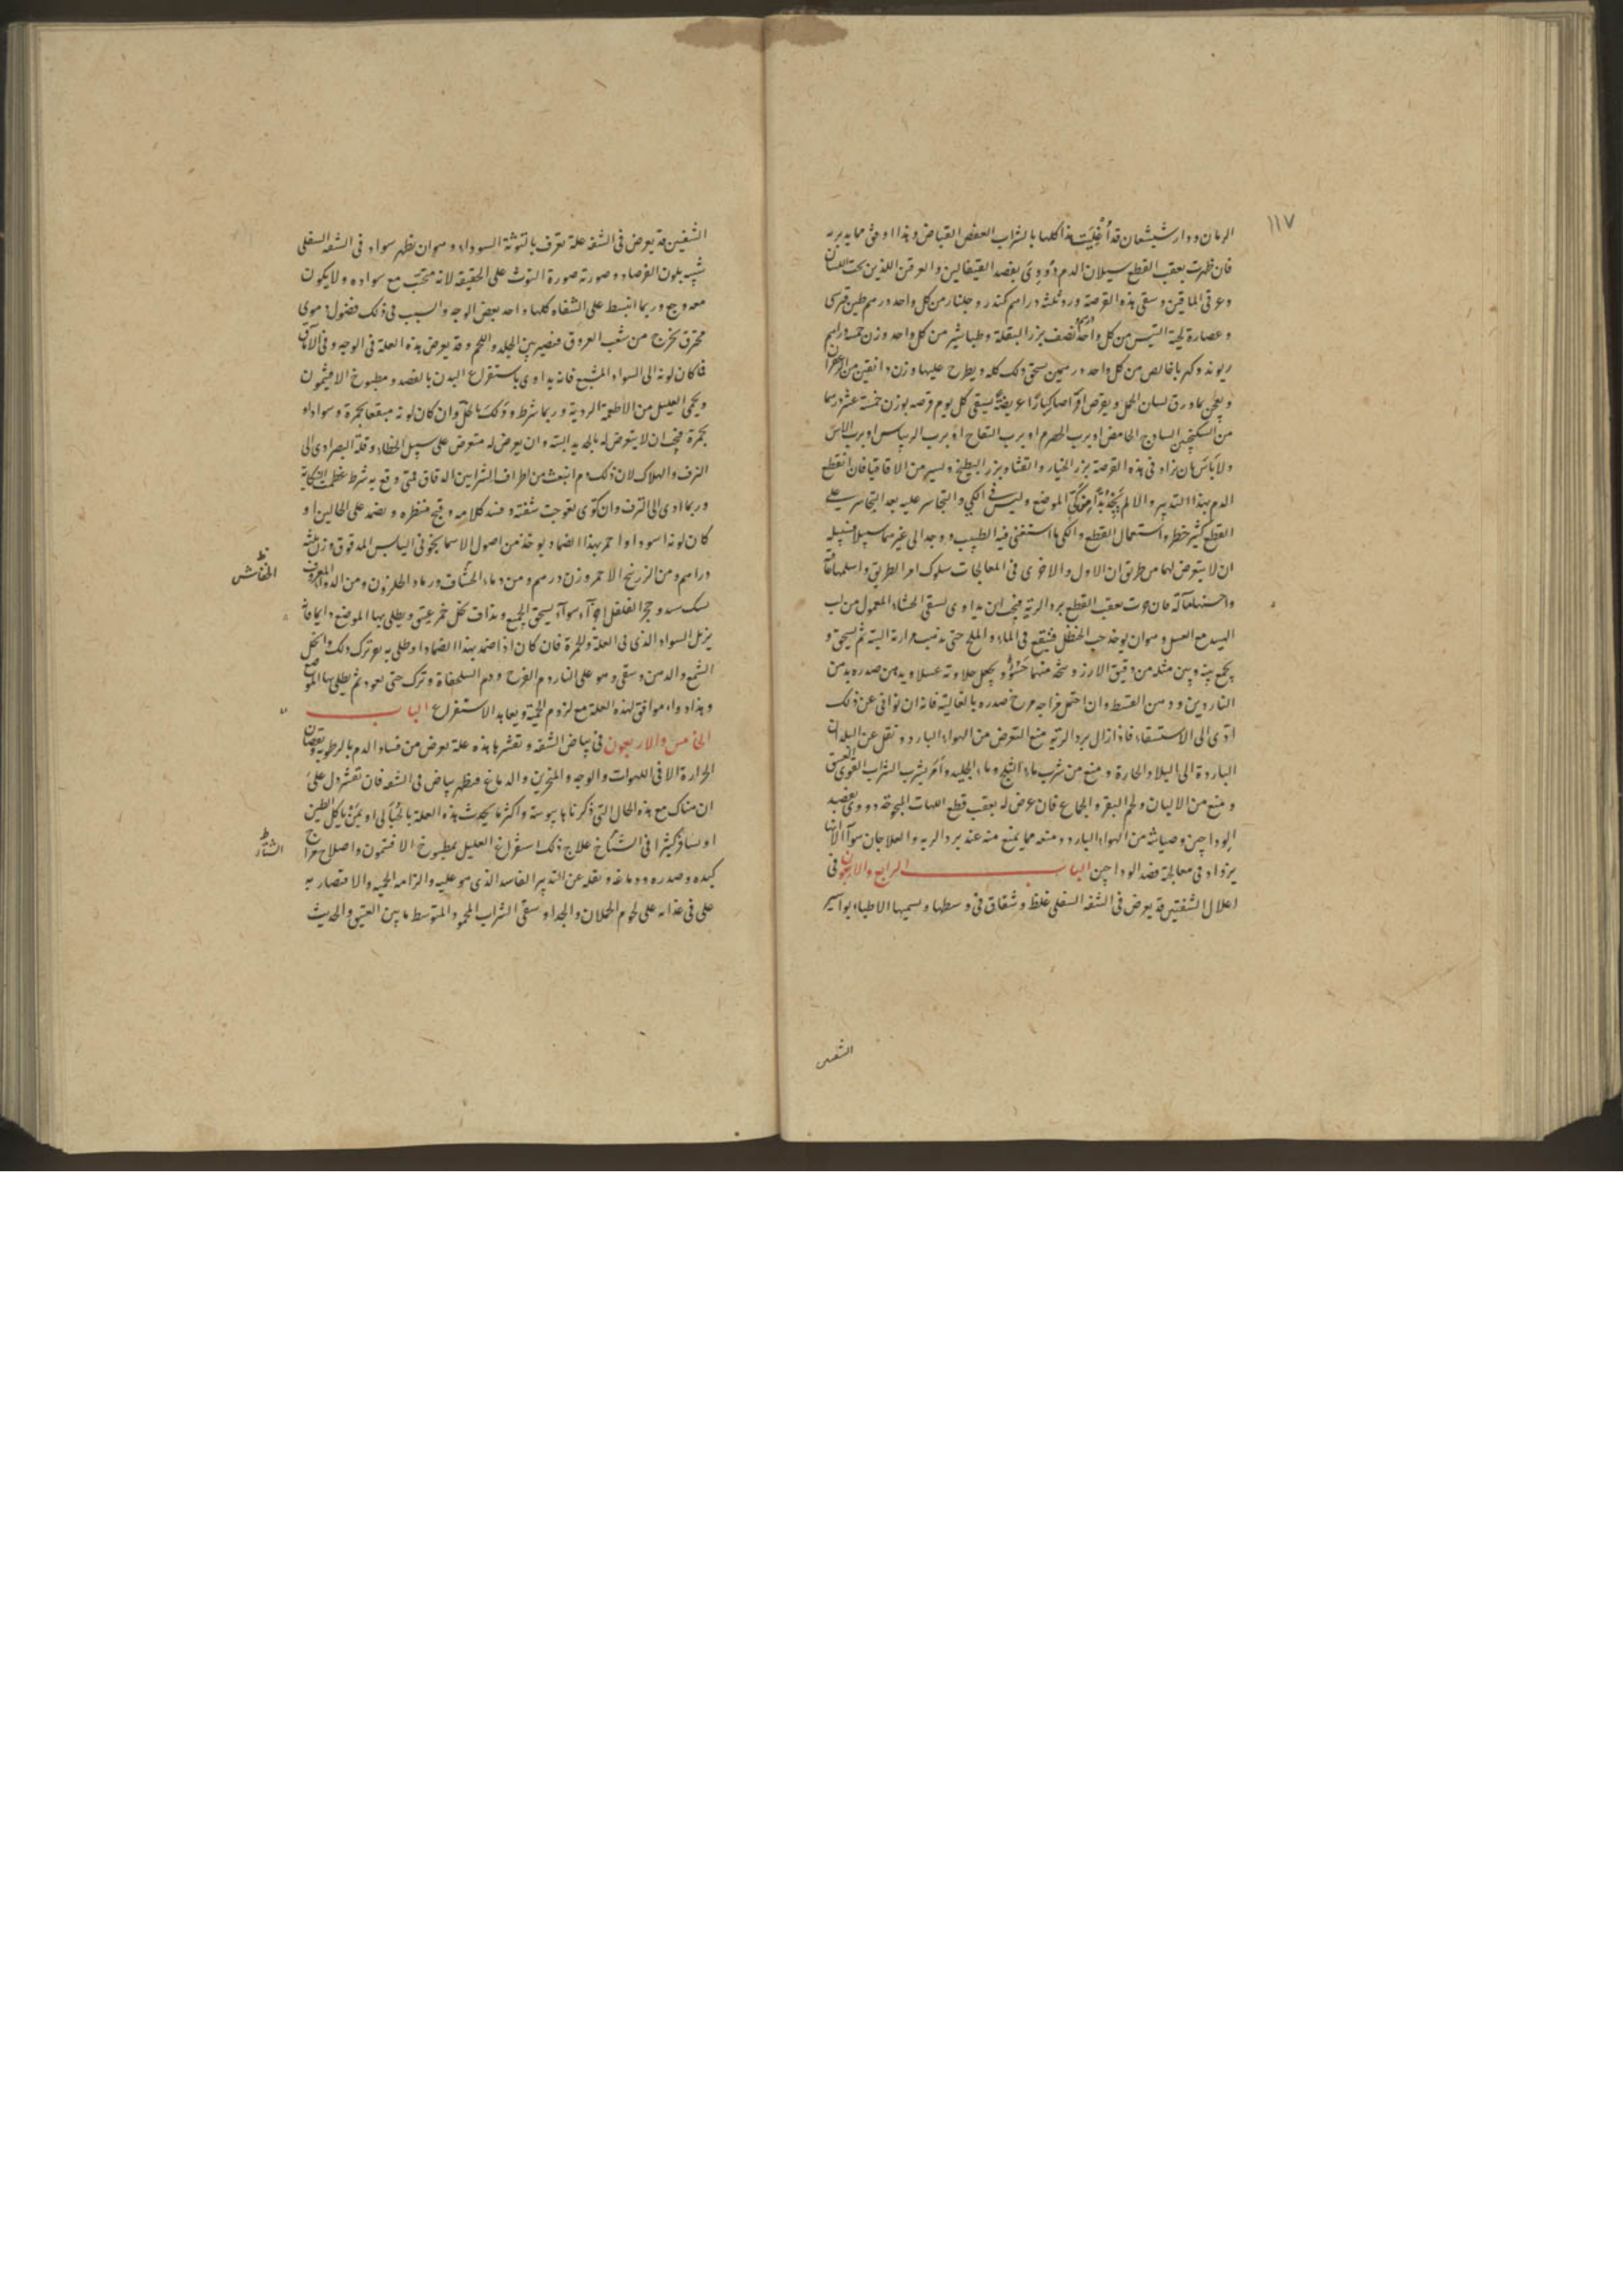 ١١٧
الرمان ودار شيشعان قد أغليت هذا كلها بالشراب العفص القباض وهذا اوفق مما يدبر به
فان ظهرت بعقب القطع سيلان الدم دووى بفصد القيفالين والعرقين اللذين تحت اللسان
وعرقى الماقين وسقى هذه القرصة ورد ثلثة دراهم كندر وجلنار من كل واحد درهم طين قبرسى
وعصارة لحية التيس من كل واحد درهم ونصف بزر البقلة وطباشير من كل واحد وزن خمسة دراهم
ريوند وكهربا خالص من كل واحد درهمين يسحق ذلك كله ويطرح عليها وزن دانقين من الزعفران
ويعجن بماء ورق لسان الحمل ويقرص اقراصا كبارا عريضة يسقى كل يوم قرصه بوزن خمسة عشر درهما
من السكنجبين الساذج الحامض او برب الحصرم او برب التفاح او برب الريباس او برب الآس
ولا بأس بان يزاد فى هذه القرصة بزر الخيار والقثاء وبزر البطيخ ويسير من الاقاقيا فان انقطع
الدم بهذا التدبير والا لم يجد بدا من كى الموضع وليس فى الكي والتجاسر عليه بعد التجاسر على
القطع كثير خطر واستعمال القطع والكى ما استغنى فيه الطبيب ووجد الى غيرهما سبيلا فسبيله
ان لا يتعرض لهما من طريق ان الاول والاخرى فى المعالجات سلوك احد الطريق واسلمها عاقبة
واحسنها مآلا فان حدث بعقب القطع برد الرية فيجب ان يداوى بسقى الحساء المعمول من لب
الهبيد مع العسل وهو ان يوخذ حب الحنظل فينقع فى الماء والملح حتى يذهب مرارته البته ثم يسحق و
يجمع بينه وبين مثله من دقيق الارز ويتخذ منهما حسو ويجعل حلاوته عسلا ويدهن صدره بدهن
الناردين ودهن القسط وان احتمل مزاجه مرخ صدره بالغالية فانه ان توانى عن ذلك
ادى الى الاستسقاء فاذا زال برد الرية منع التعرض من الهواء البارد ونقل عن البلدان
الباردة الى البلاد الحارة ومنع من شرب ماء الثلج وماء الجليد وأمر بشرب الشراب القوى العتيق
ومنع من الالبان ولحم البقر والجماع فان عرض له بعقب قطع اللهات البحوحة دووى بفصد
الوداجين وصيانته من الهواء البارد ومنعه مما يمنع منه عند برد الرية والعلاجان سوآ الا انه
يزداد فى معالجة فصد الوداجين الباب الرابع والاربعون فى
اعلال الشفتين قد يعرض فى الشفه السفلى غلظ وشقاق فى وسطها ويسميها الاطباء بواسير
الشفتين
الشفتين قد يعرض فى الشفة علة تعرف بالتوثة السوداء وهو ان يظهر سواد فى الشفه السفلى
شبيه بلون الفرصاد وصورته صورة التوث على الحقيقه لانه محبب مع سواده ولا يكون
معه وجع وربما انبسط على الشفاه كلها واخذ بعض الوجه والسبب فى ذلك فضول دموى
محترق تخرج من شعب العروق فتصير بين الجلد واللحم وقد يعرض هذه العلة فى الوجه وفى الآماق
فما كان لونه الى السواد المشبع فانه يداوى باستفراغ البدن بالفصد ومطبوخ الافيثمون
ويحمى العليل من الاطعمة الردية وربما شرط ودلك بالخل وان كان لونه مبقعا بحمرة وسوادا و
بحمرة فيجب ان لا يتعرض له بالحديد البته وان يعرض له متعرض على سبيل الخطاء وقلة البصر ادى الى
النزف والهلاك لان ذلك دم انبعث من اطراف الشرايين الدقاق فمتى وقع به شرط عظمت النكاية
وربما ادى الى النزف وان كوى تعوجت شفته وفسد كلامه وقبح منظره ويضمد على الحالين او
كان لونه اسود او احمر بهذا الضماد يوخذ من اصول الاسمانجونى اليابس المدقوق وزن ثلثه
دراهم ومن الزرنيخ الاحمر وزن درهم ومن دماء الخشاف ورماد الحلزون ومن الدواء المعروف
وحجر الفلفل اجزآء سوآء يسحق الجميع ويداف بخل خمر عتيق ويطلى بها الموضع دايما فانه
يزيل السواد الذى فى العلة والحمرة فان كان اذا ضمد بهذا الضماد او طلى به ترك ذلك واخذ
الشمع والدهن وسقى وهو على النار دم الفرخ ودم السلحفاة وترك حتى يعود ثم يطلى بها الموضع
وهذا دواء موافق لهذه العلة مع لزوم الحمية ويعاهد الاستفراغ الباب
الخامس والاربعون فى بياض الشفه وتقشرها هذه علة تعرض من فساد الدم بالرطوبة ونقصان
الحرارة الا فى اللهوات والوجه والمنخرين والدماغ فيظهر بياض فى الشفه فان تقشر دل على
ان هناك مع هذه الحال التى ذكرناها يبوسة واكثر ما يحدث هذه العلة بالحبالى او بمن ياكل الطين
او يسافر كثيرا فى الشتاء علاج ذلك استفراغ العليل بمطبوخ الافتيمون واصلاح مزاج
كبده وصدره ودماغه ونقله عن التدبير الفاسد الذى هو عليه والزامه الحميه والاقتصار به
على فى غذائه على لحوم الحملان والجداء وسقى الشراب المحمود المتوسط ما بين العتيق والحديث
الخفاش
الشتاء